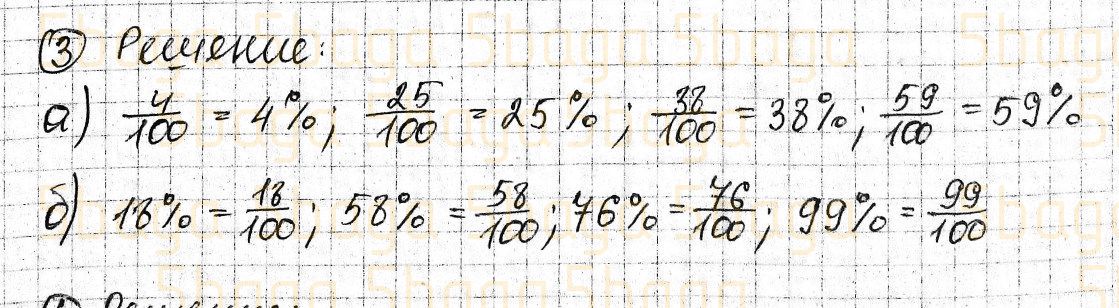 ③ Решение:
а) 4/100 = 4%; 25/100 = 25%; 38/100 = 38%; 59/100 = 59%
б) 18% = 18/100; 58% = 58/100; 76% = 76/100; 99% = 99/100